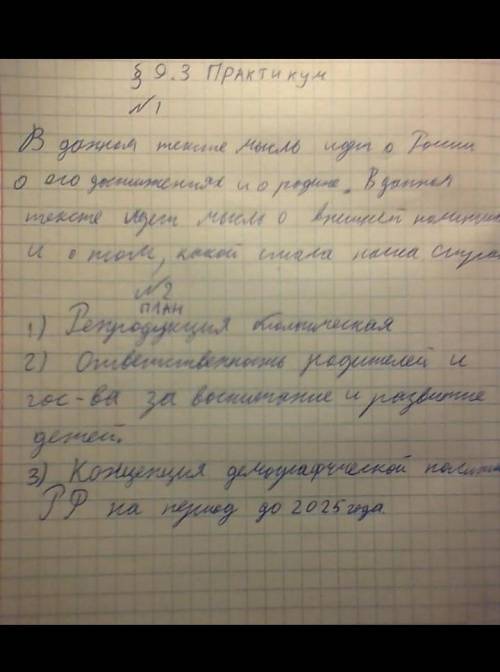 § 9.3 Практикум
№1
В данном тексте мысль идёт о России
о его достижениях и о родине. В данном
тексте идет мысль о внешней политик
и о том, какой стала наша стра
№2
план
1) Репродукция биологическая
2) Ответственность родителей и
гос-ва за воспитание и развитие
детей.
3) Концепция демографической полити
РФ на период до 2025 года.